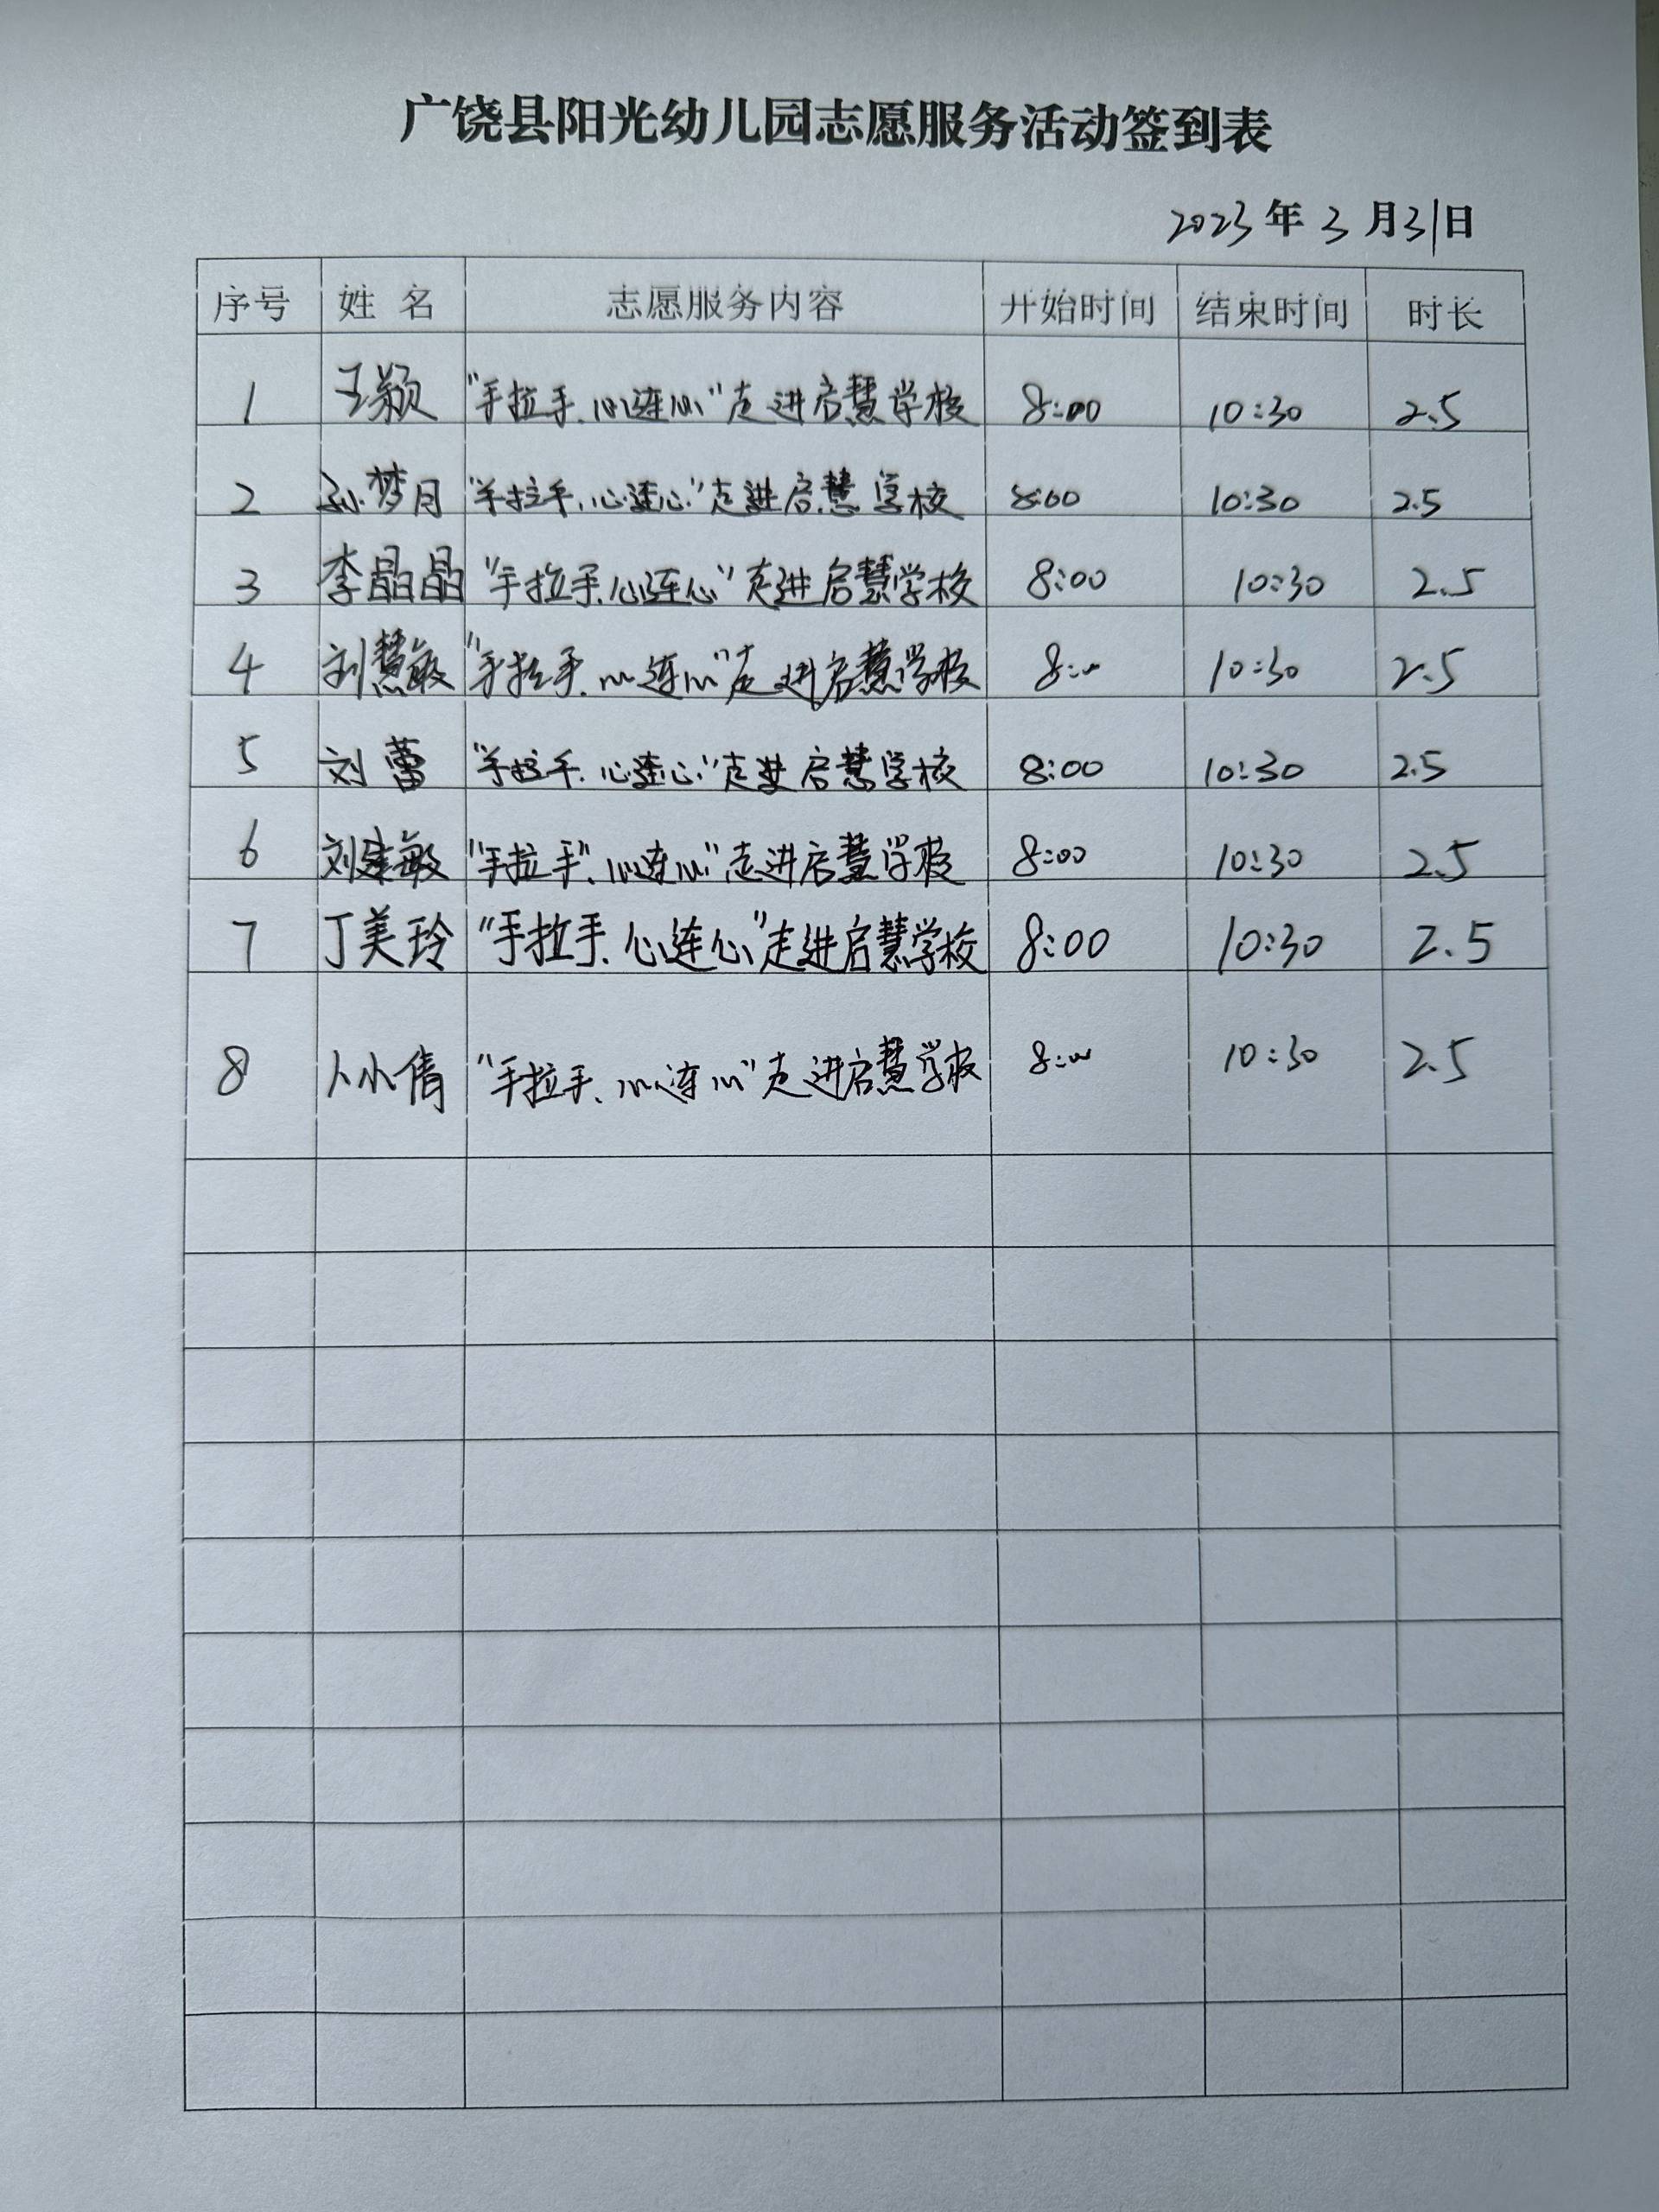 广饶县阳光幼儿园志愿服务活动签到表
2023年3月31日
序号 姓名 志愿服务内容 开始时间 结束时间 时长
1 王颖 "手拉手、心连心"走进启慧学校 8:00 10:30 2.5
2 孙梦月 "手拉手、心连心"走进启慧学校 8:00 10:30 2.5
3 李晶晶 "手拉手、心连心"走进启慧学校 8:00 10:30 2.5
4 刘慧敏 "手拉手、心连心"走进启慧学校 8:00 10:30 2.5
5 刘蕾 "手拉手、心连心"走进启慧学校 8:00 10:30 2.5
6 刘建敏 "手拉手"、心连心"走进启慧学校 8:00 10:30 2.5
7 丁美玲 "手拉手、心连心"走进启慧学校 8:00 10:30 2.5
8 卜小倩 "手拉手、心连心"走进启慧学校 8:00 10:30 2.5